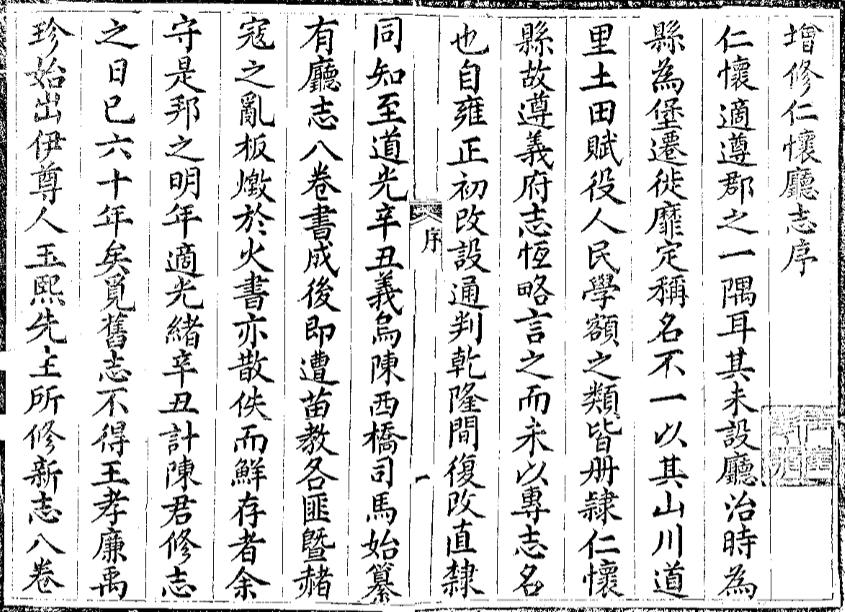 增修仁懷廳志序
仁懷適遵郡之一隅耳其未設廳治時為
縣為堡遷徙靡定稱名不一以其山川道
里土田賦役人民學額之類皆册隸仁懷
縣故遵義府志恆略言之而未以專志名
也自雍正初改設通判乾隆間復改直隸
序
一
同知至道光辛丑義烏陳西橋司馬始纂
有廳志八卷書成後即遭苗教各匪暨赭
寇之亂板燬於火書亦散佚而鮮存者余
守是邦之明年適光緒辛丑計陳君修志
之日已六十年矣覓舊志不得王孝廉禹
珍始出伊尊人玉熙先主所修新志八卷